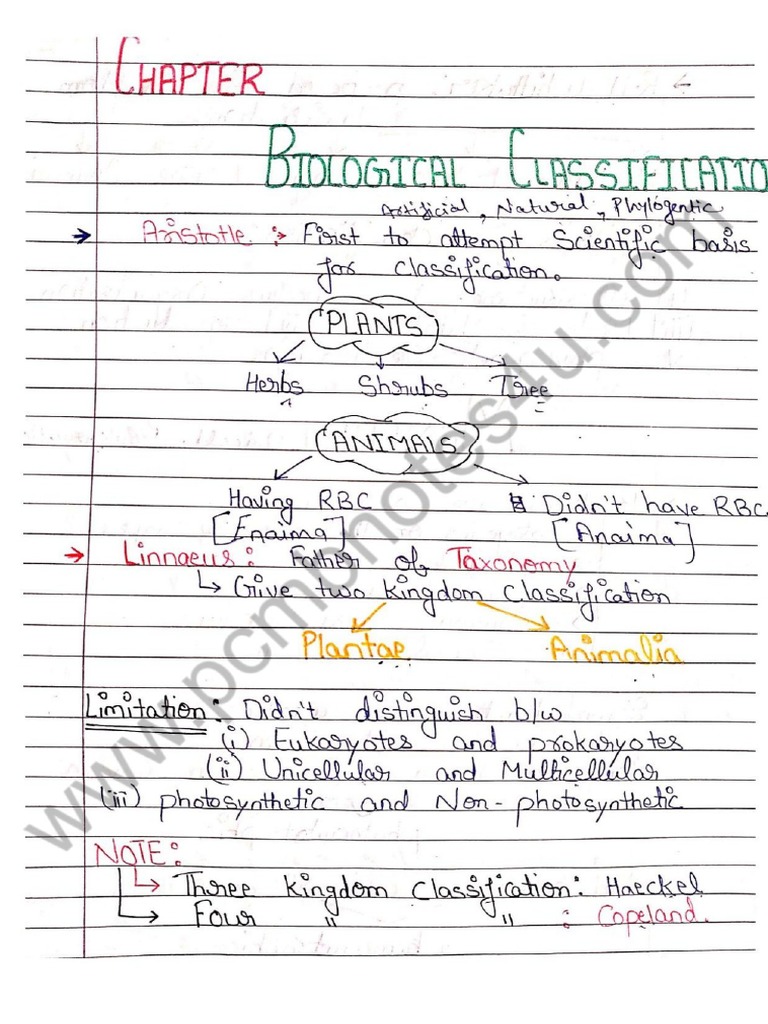 CHAPTER
BIOLOGICAL CLASSIFICATIO
Artificial, Natural, Phylogentic
→ Aristotle :- First to attempt Scientific basis
for classification.
PLANTS
Herbs Shrubs Tree
ANIMALS
Having RBC Didn't have RBC
[Enaima] [Anaima]
→ Linnaeus: Father of Taxonomy
↳ Give two kingdom classification
Plantae Animalia
Limitation: Didn't distinguish b/w
(i) Eukaryotes and prokaryotes
(ii) Unicellular and Multicellular
(iii) photosynthetic and Non-photosynthetic
NOTE:
↳ Three kingdom classification: Haeckel
→ Four " " : Copeland.
www.pcmbnotes4u.com